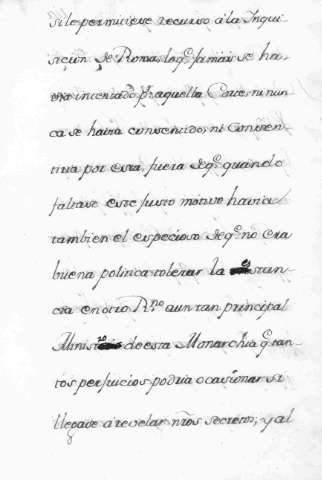 si le permitiese recurso à la Inqui-
sicion de Roma, lo q.e jamas se ha-
via intentado p.r aquella Corte, ni nun-
ca se havia consentido, ni consen-
tiria por esta, fuera de q.e quando
faltase este justo motivo havia
tambien el especioso de q.e no era
buena politica tolerar la estan-
cia en otro R.no a un tan principal
Ministro de esta Monarchia q.e tan-
tos perjuicios podria ocasionar si
llegase à revelar n̄ros secretos, y al